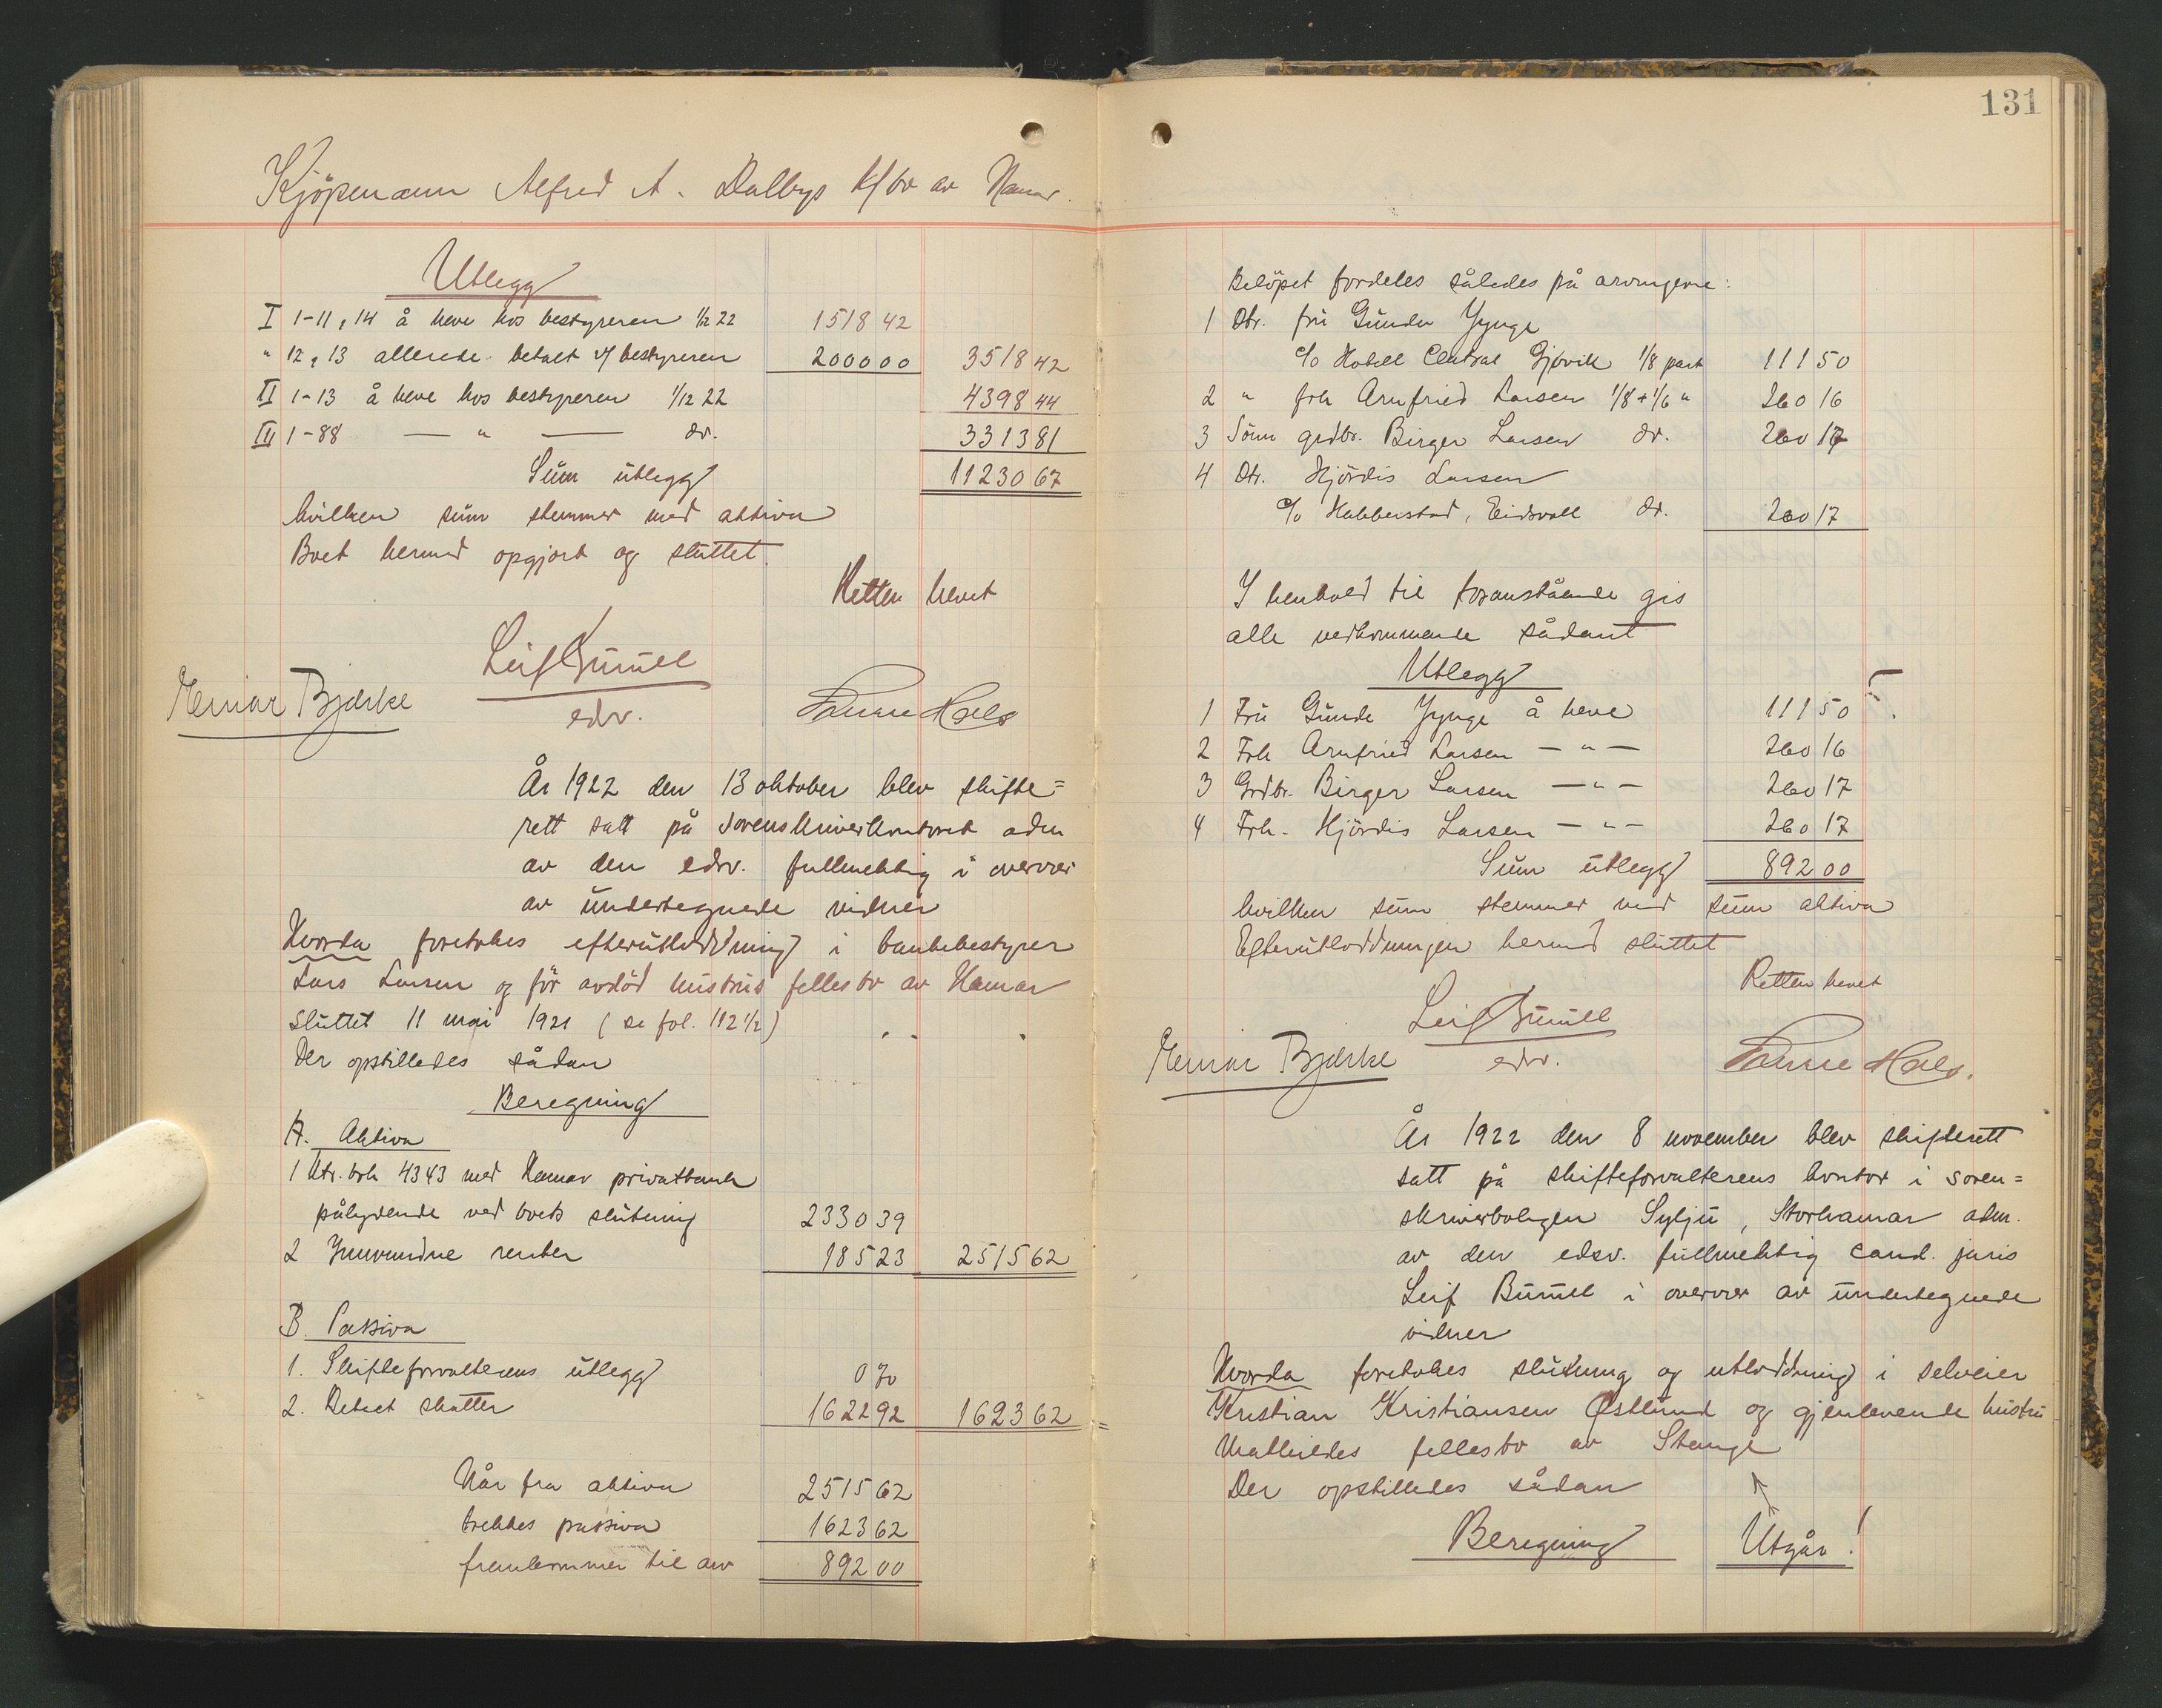 Kjøpmann Alfred A. Dalbys k/bo av Hamar.
Utlegg
I 1-11, 14 å heve hos bestyreren 1/12 22 1518 42
" 12, 13 allerede betalt af bestyreren 2000 00 3518 42
II 1-13 å heve hos bestyreren 1/12 22 4398 44
III 1-88 — " — do. 3313 81
Sum utlegg 11230 67
hvilken sum stemmer med aktiva
Boet hermed opgjort og sluttet.
Retten hevet
Leif Bünell
edsv.
Einar Bjerke
Hals
År 1922 den 13 oktober blev skifte=
rett satt på sorenskriverkontoret adm
av den edsv. fullmektig i overvær
av undertegnede vidner
Hvorda foretokes efterutloddning i bankbestyrer
Lars Larsen og før avdød hustrus fellesbo av Hamar
sluttet 11 mai 1921 (se fol. 112 1/2)
Der opstilledes sådan
Beregning
A. Aktiva
1 Ktr. bok 4343 med Hamar privatbank
pålydende ved boets slutning 2330 39
2 Innvundne renter 185 23 2515 62
B. Passiva
1. Skifteforvalterens utlegg 0 70
2. Betalt skatter 1622 92 1623 62 =
Når fra aktiva 2515 62
trekkes passiva 1623 62
fremkommer til arv 892 00
131
Beløpet fordeles således på arvingene:
1 Dtr. fru Gunda Jynge
c/o Hotell Central Gjøvik 1/8 part 111 50
2 " frk Arnfried Larsen 1/8 + 1/6 " 260 16
3 Sønn grdbr. Birger Larsen do. 260 17
4 Dtr. Hjørdis Larsen
c/o Habberstad, Eidsvoll do. 260 17
I henhold til foranstående gis
alle vedkommende sådant
Utlegg
1 Fru Gunda Jynge å heve 111 50
2 Frk Arnfried Larsen — " — 260 16
3 Grdbr. Birger Larsen — " — 260 17
4 Frk. Hjørdis Larsen — " — 260 17
Sum utlegg 892 00
hvilken sum stemmer med sum aktiva
Efterutloddningen hermed sluttet
Retten hevet
Leif Bünell
edsv.
Einar Bjerke
Hals.
År 1922 den 8 november blev skifterett
satt på skifteforvalterens kontor i soren=
skriverboligen Sylju, Storhamar adm.
av den edsv. fullmektig cand. juris
Leif Bünell i overvær av undertegnede
vidner
Hvorda foretokes slutning og utloddning i selveier
Kristian Kristiansen Østlund og gjenlevende hustru
Mathildes fellesbo av Stange
Der opstilledes sådan
Beregning Utgår!